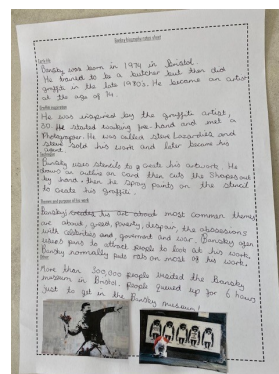 Banksy biography fact sheet
Early life
Banksy was born in 1974 in Bristol.
He trained to be a butcher but then did
graffiti in the late 1980's. He became an artist
at the age of 14.
He was inspired by the graffiti artist,
3D. He started working free-hand and met a
Photographer. He was called Steve Lazarides, and
sold his work and later became his
agent.
Banksy uses stencils to create his artwork. He
draws an outline on card then cuts the shapes out
by hand, then he spray paints on the stencil
to create his graffiti.
Themes and purpose of his work
Banksy most common themes
are about, greed, poverty, despair, the obsessions
with celebrities and goverment and war. Banksy often
uses puns to attract people to look at his work.
Banksy normally puts rats on most of his work.
Other
More than 300,000 people visited the Banksy
museum in Bristol. People queued up for 6 hours
just to get in the Banksy museum!